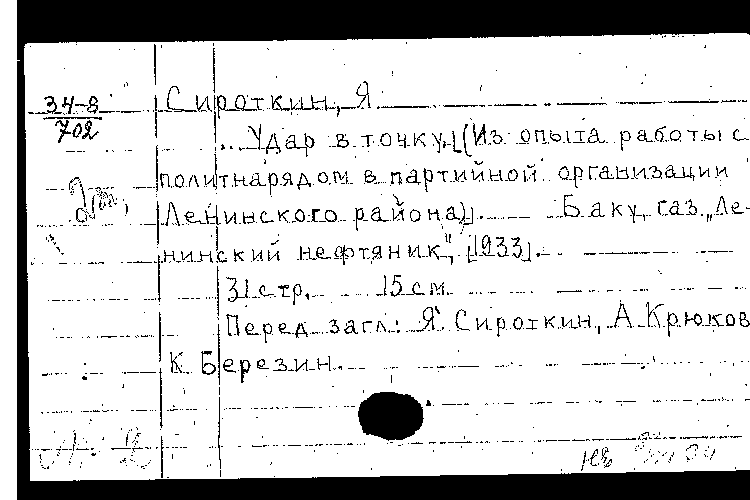 34-8
702
Сироткин, Я
... Удар в точку. [(Из опыта работы с
политнарядом в партийной организации
Ленинского района)]. Баку, газ. „Ле-
нинский нефтяник", [1933].
31 стр. 15 см.
Перед загл.: Я. Сироткин, А. Крюков
К Березин.